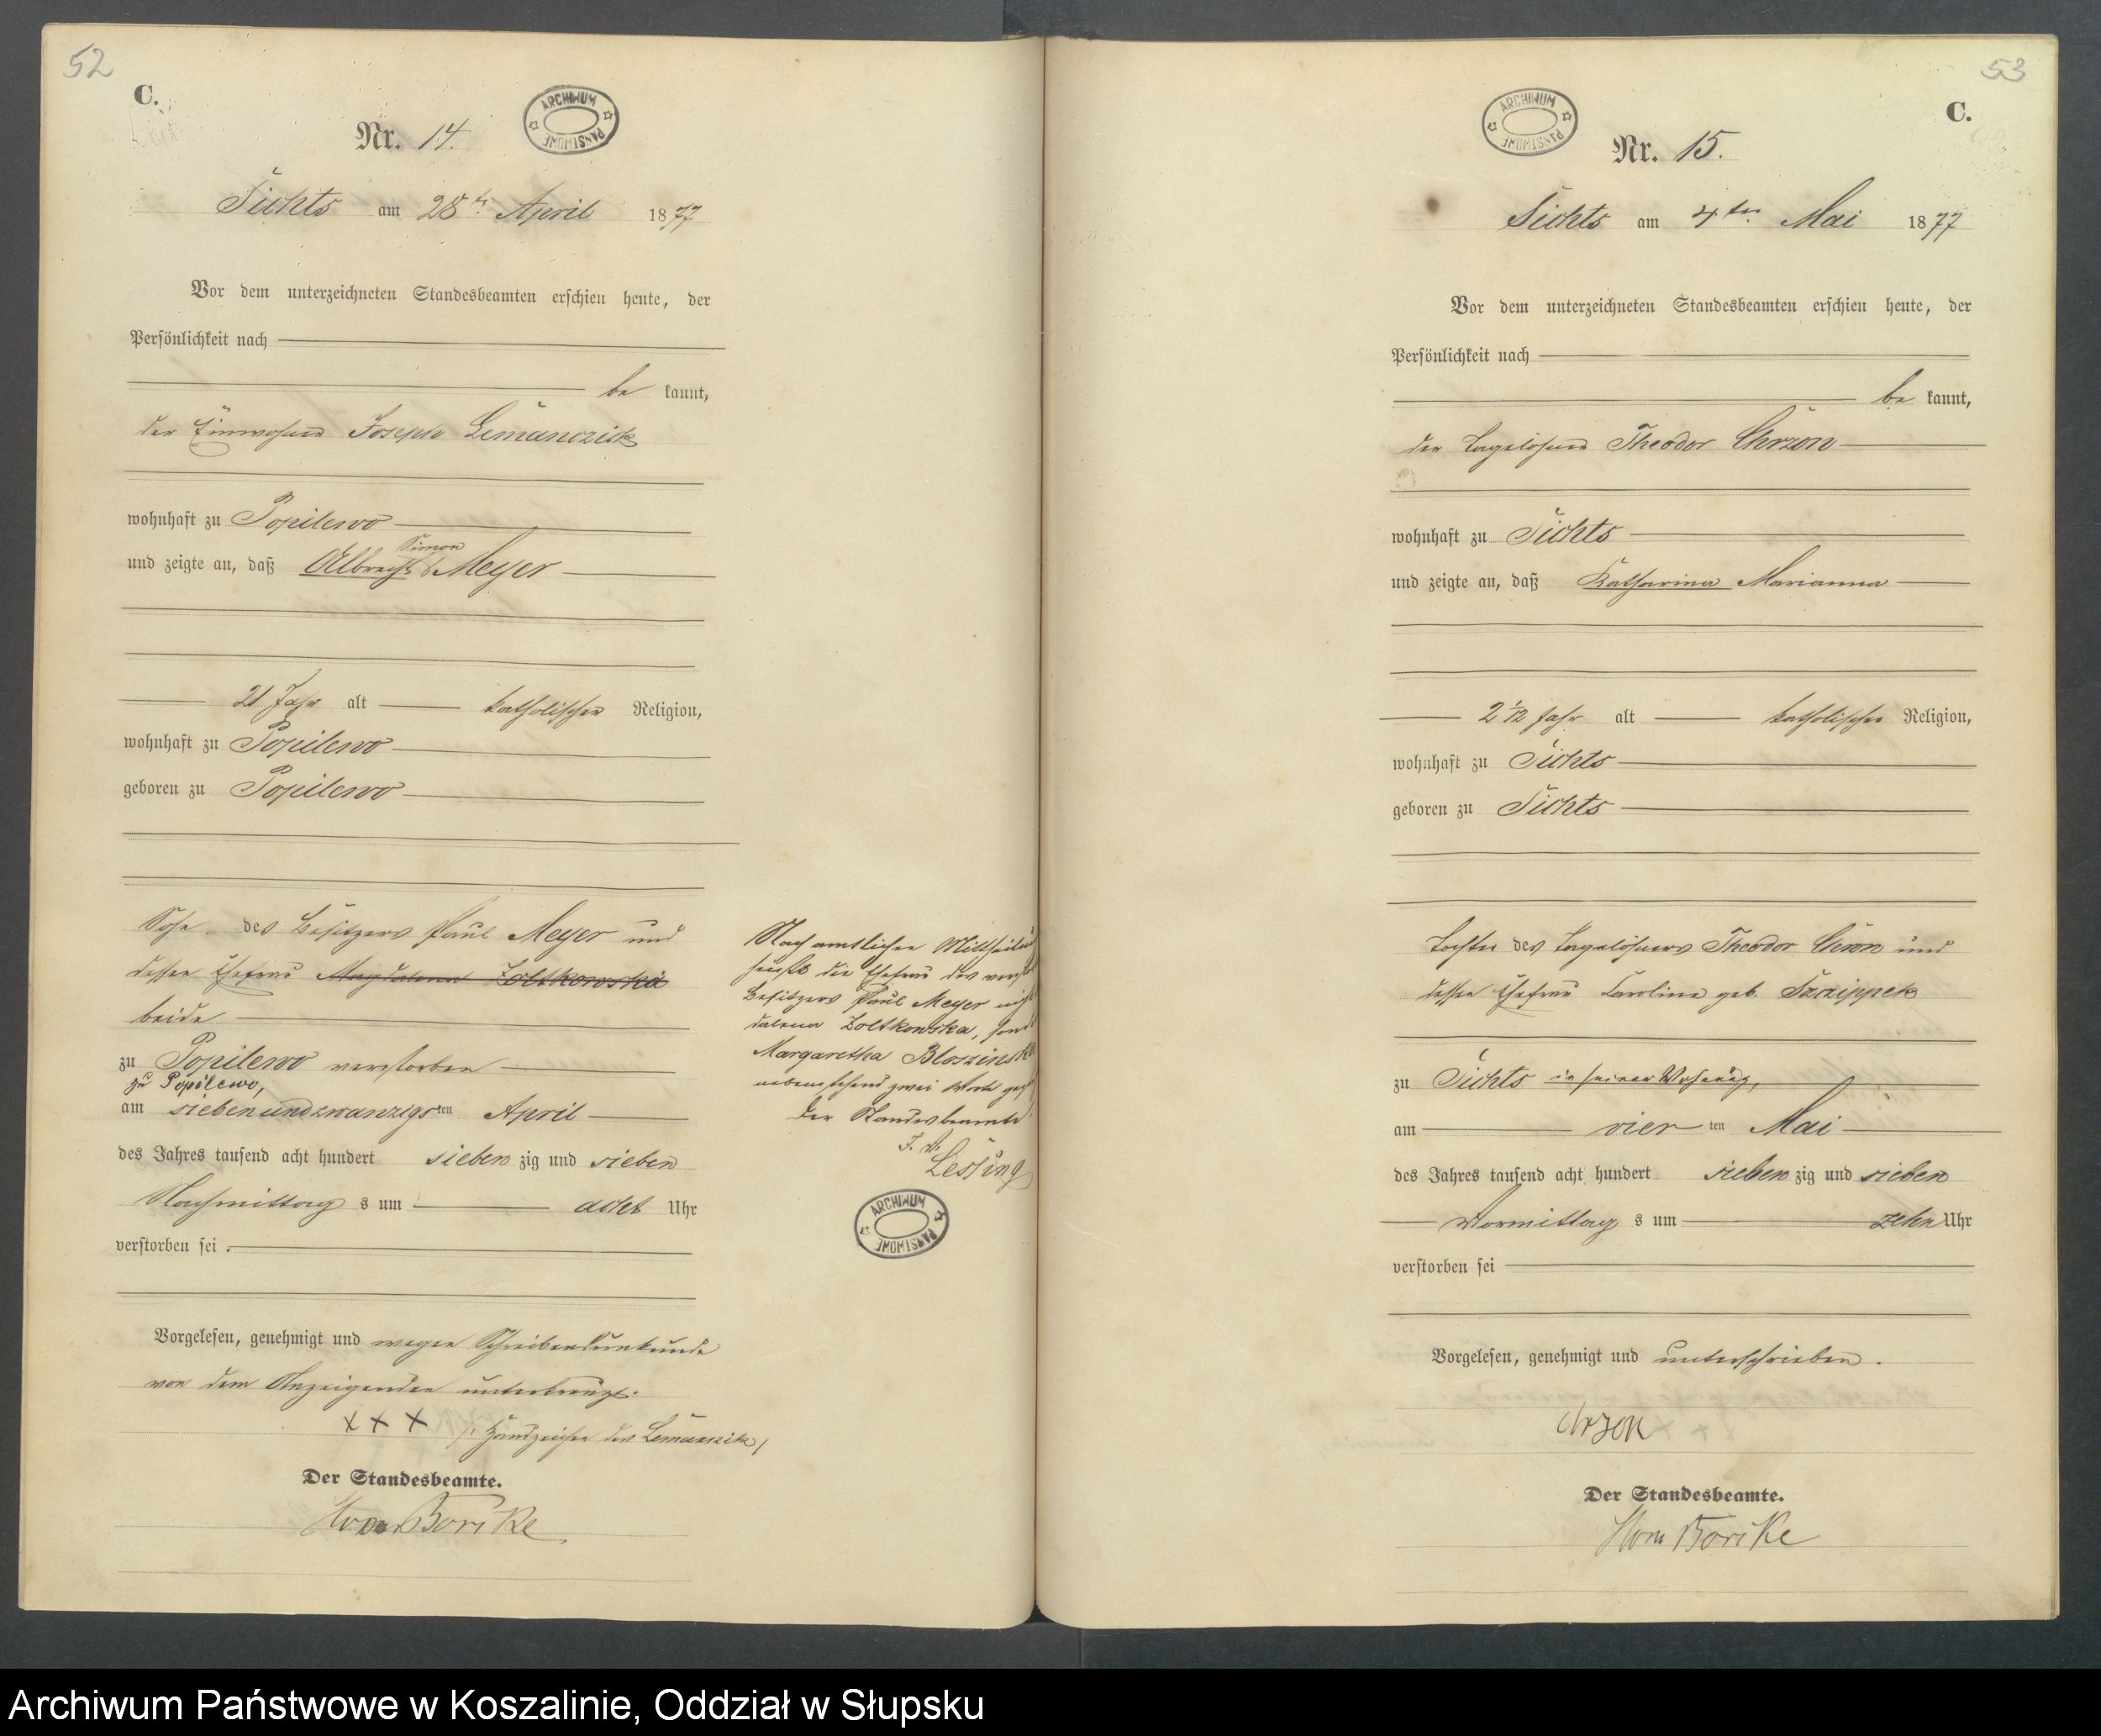 52
C.
ARCHIWUM PAŃSTWOWE
Nr. 14.
Zichts am 28ten April 1877
Vor dem unterzeichneten Standesbeamten erschien heute, der
Persönlichkeit nach
be kannt,
der Einwohner Joseph Lemanczick
wohnhaft zu Popilewo
Simon
und zeigte an, daß Albrecht Meyer
21 Jahr alt katholischer Religion,
wohnhaft zu Popilewo
geboren zu Popilewo
Sohn des Besitzers Paul Meyer und
dessen Ehefrau Magdalena Zoltkowska
beide
zu Popilewo verstorben
zu Popilewo,
am siebenundzwanzigsten April
des Jahres tausend acht hundert sieben zig und sieben
Nachmittag s um acht Uhr
verstorben sei.
Vorgelesen, genehmigt und wegen Schreibensunkunde
von dem Anzeigenden unterkreuzt.
+++ /: Handzeichen des Lemanczik /
Der Standesbeamte.
Nach amtlicher
die Ehefrau des
Besitzers Paul Meyer
dalena Zoltkowska,
Margaretha
nebenstehend zwei Worte
Der Standesbeamte
Lessing
ARCHIWUM PAŃSTWOWE
53
C.
ARCHIWUM PAŃSTWOWE
Nr. 15.
Zichts am 4ten Mai 1877
Vor dem unterzeichneten Standesbeamten erschien heute, der
Persönlichkeit nach
be kannt,
der Tagelöhner Theodor Chrzon
wohnhaft zu Zichts
und zeigte an, daß Katharina Marianna
2 1/12 Jahr alt katholischer Religion,
wohnhaft zu Zichts
geboren zu Zichts
Tochter des Tagelöhners Theodor und
dessen Ehefrau Caroline geb.
zu Zichts in seiner Wohnung,
am vier ten Mai
des Jahres tausend acht hundert sieben zig und sieben
Vormittag s um zehn Uhr
verstorben sei
Vorgelesen, genehmigt und unterschrieben.
Chrzon
Der Standesbeamte.
Archiwum Państwowe w Koszalinie, Oddział w Słupsku